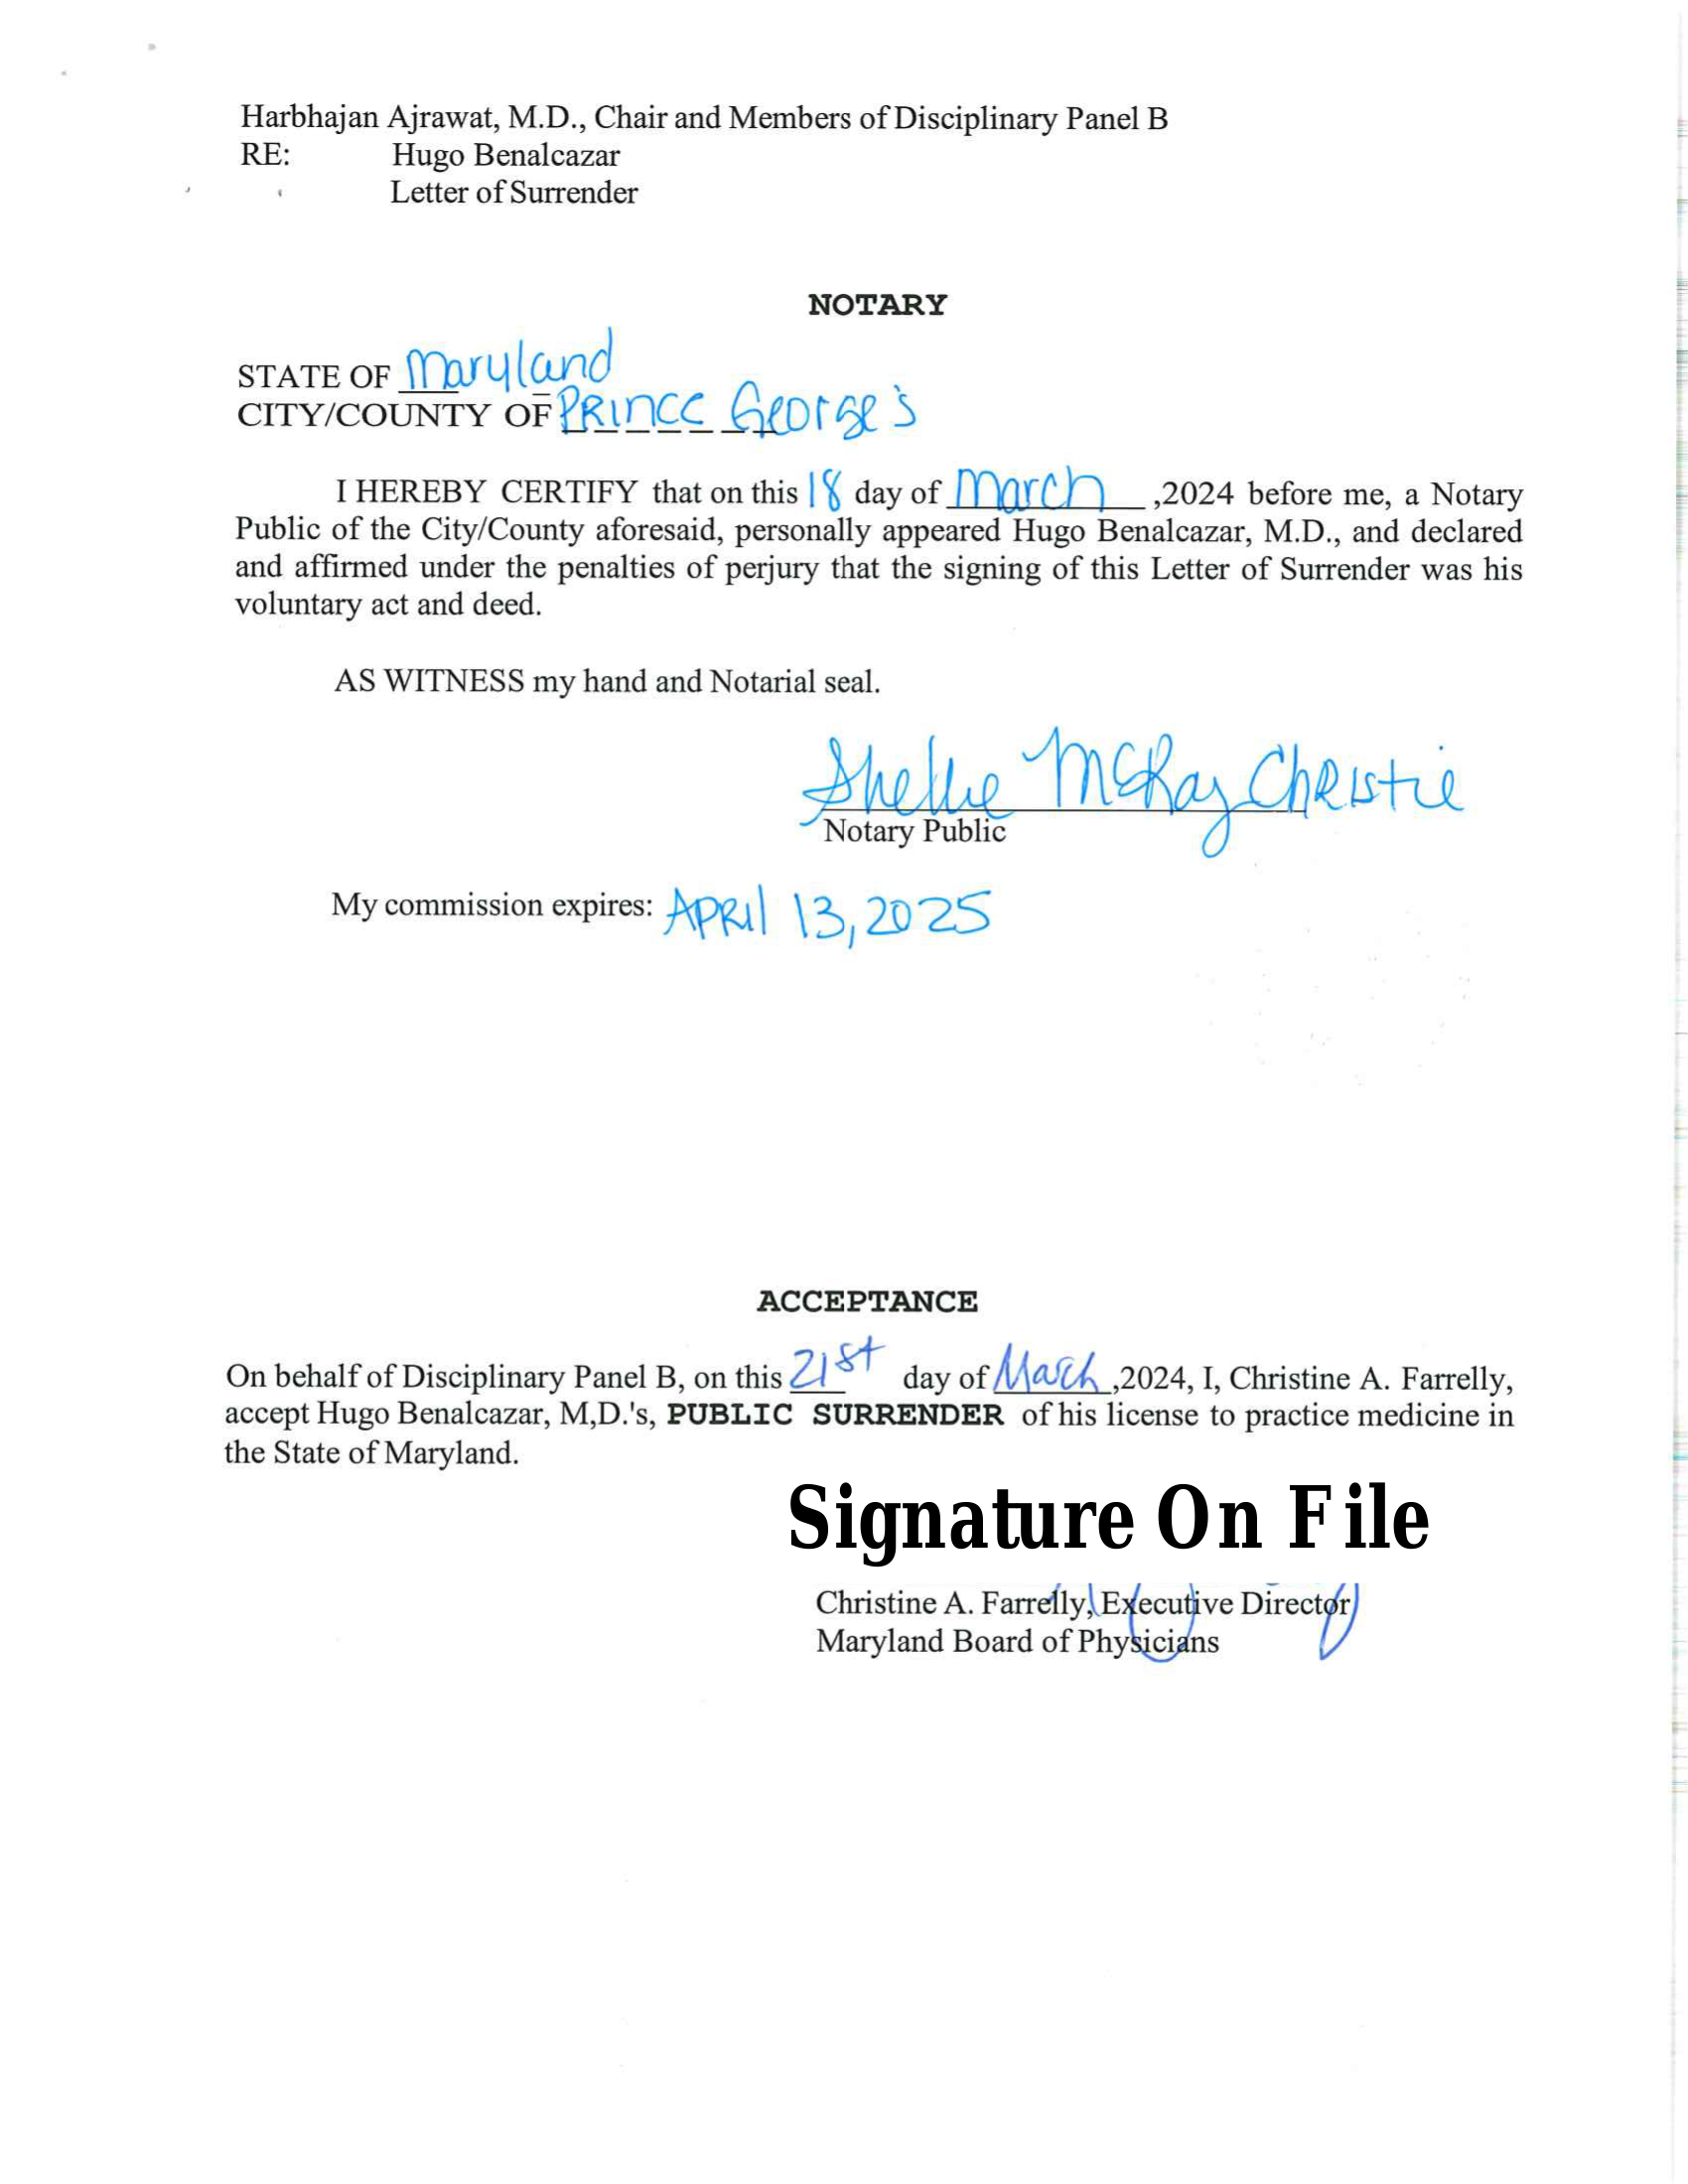 Harbhajan Ajrawat, M.D., Chair and Members of Disciplinary Panel B
RE: Hugo Benalcazar
Letter of Surrender
NOTARY
STATE OF Maryland
CITY/COUNTY OF Prince George's
I HEREBY CERTIFY that on this 18 day of March ,2024 before me, a Notary
Public of the City/County aforesaid, personally appeared Hugo Benalcazar, M.D., and declared
and affirmed under the penalties of perjury that the signing of this Letter of Surrender was his
voluntary act and deed.
AS WITNESS my hand and Notarial seal.
Shellie McKay Christie
Notary Public
My commission expires: APRil 13, 2025
ACCEPTANCE
On behalf of Disciplinary Panel B, on this 21st day of March ,2024, I, Christine A. Farrelly,
accept Hugo Benalcazar, M,D.'s, PUBLIC SURRENDER of his license to practice medicine in
the State of Maryland.
Signature On File
Christine A. Farrelly, Executive Director
Maryland Board of Physicians